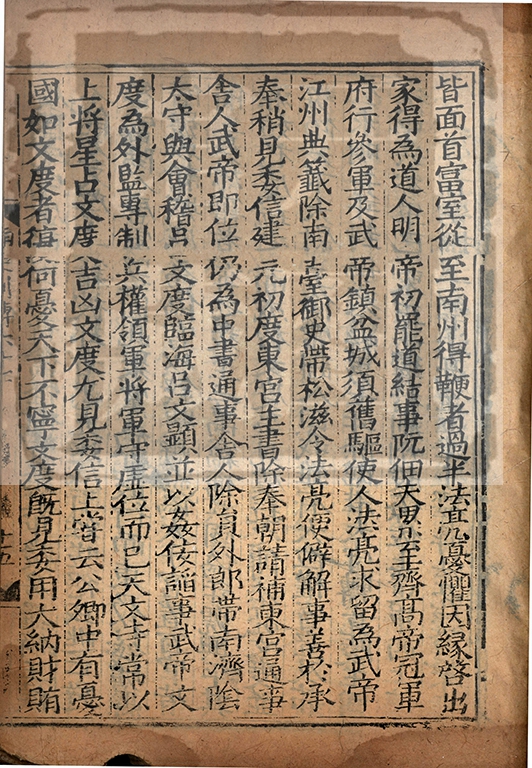 皆面首富室從至南州得鞭者過半法亮憂懼因緣啓出
家得為道人明帝初罷道結事阮佃夫累至齊高帝冠軍
府行參軍及武帝鎮盆城須舊驅使人法亮求留為武帝
江州典籤除南臺御史帶松滋令法亮便僻解事善於承
奉稍見委信建元初度東宮主書除奉朝請補東宮通事
舍人武帝即位仍為中書通事舍人除員外郎帶南濟陰
太守與會稽呂文度臨海呂文顯並以姦佞諂事武帝文
度為外監專制兵權領軍將軍守虛位而已天文寺常以
上將星占文度吉凶文度尤見委信上嘗云公卿中有憂
國如文度者復何憂天下不寧文度旣見委用大納財賄